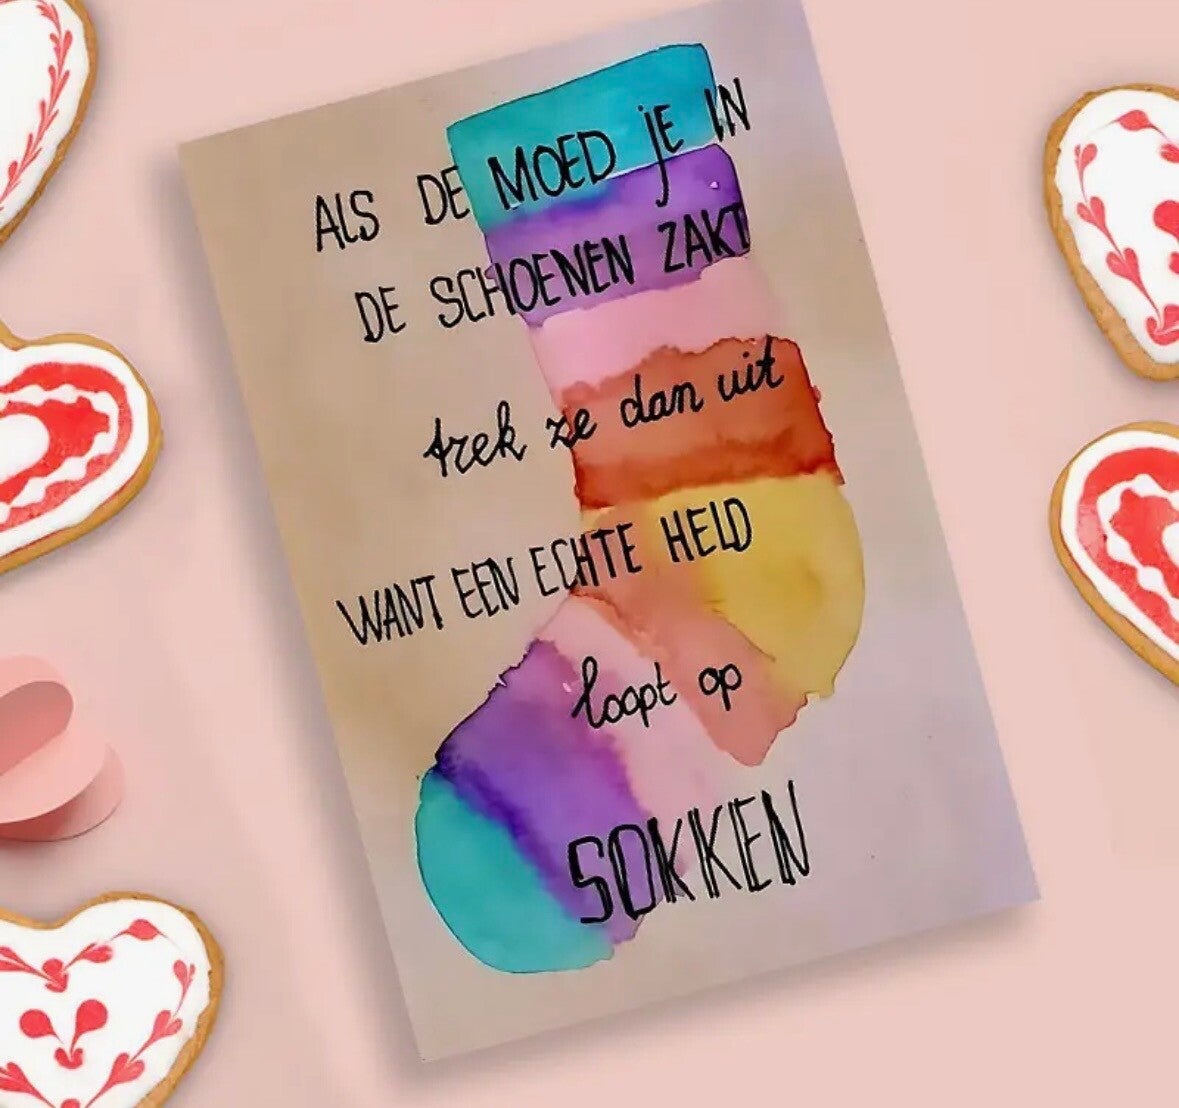 ALS DE MOED jE IN
DE SCHOENEN ZAKT
trek ze dan uit
WANT EEN ECHTE HELD
loopt op
SOKKEN